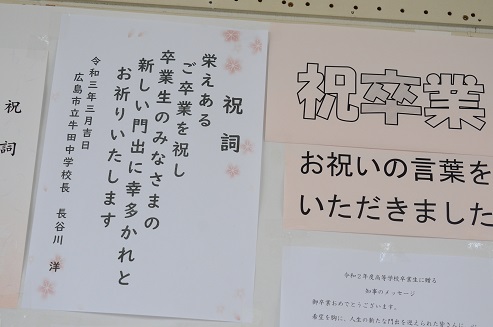 祝詞
祝詞
栄えある
ご卒業を祝し
卒業生のみなさまの
新しい門出に幸多かれと
お祈りいたします
令和三年三月吉日
広島市立牛田中学校長 長谷川 洋
祝卒業
お祝いの言葉を
いただきました
令和2年度高等学校卒業生に贈る
知事のメッセージ
御卒業おめでとうございます。
希望を胸に、人生の新たな門出を迎えられた皆さんに、